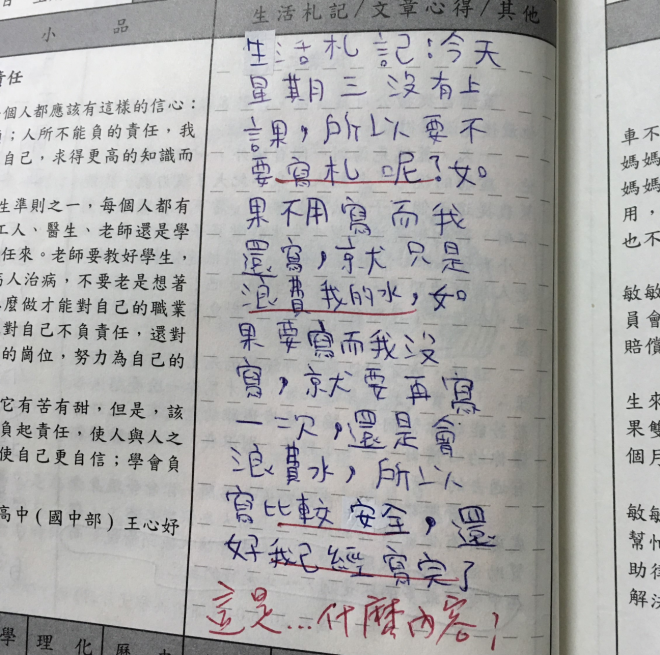 小 品
生活札記/文章心得/其他
責任
個人都應該有這樣的信心：
；人所不能負的責任，我
自己，求得更高的知識而
生準則之一，每個人都有
工人、醫生、老師還是學
任來。老師要教好學生，
病人治病，不要老是想著
麼做才能對自己的職業
對自己不負責任，還對
的崗位，努力為自己的
它有苦有甜，但是，該
負起責任，使人與人之
使自己更自信；學會負
高中(國中部) 王心妤
生活札記：今天
星期三沒有上
課，所以要不
要寫札呢？如
果不用寫而我
還寫，就只是
浪費我的水，如
果要寫而我沒
寫，就要再寫
一次，還是會
浪費水，所以
寫比較安全，還
好我已經寫完了
這是...什麼內容！
車不
媽媽
媽媽
用，
也不
敏敏
員會
賠償
生來
果雙
個月
敏敏
幫忙
助律
解決
學 理 化 歷